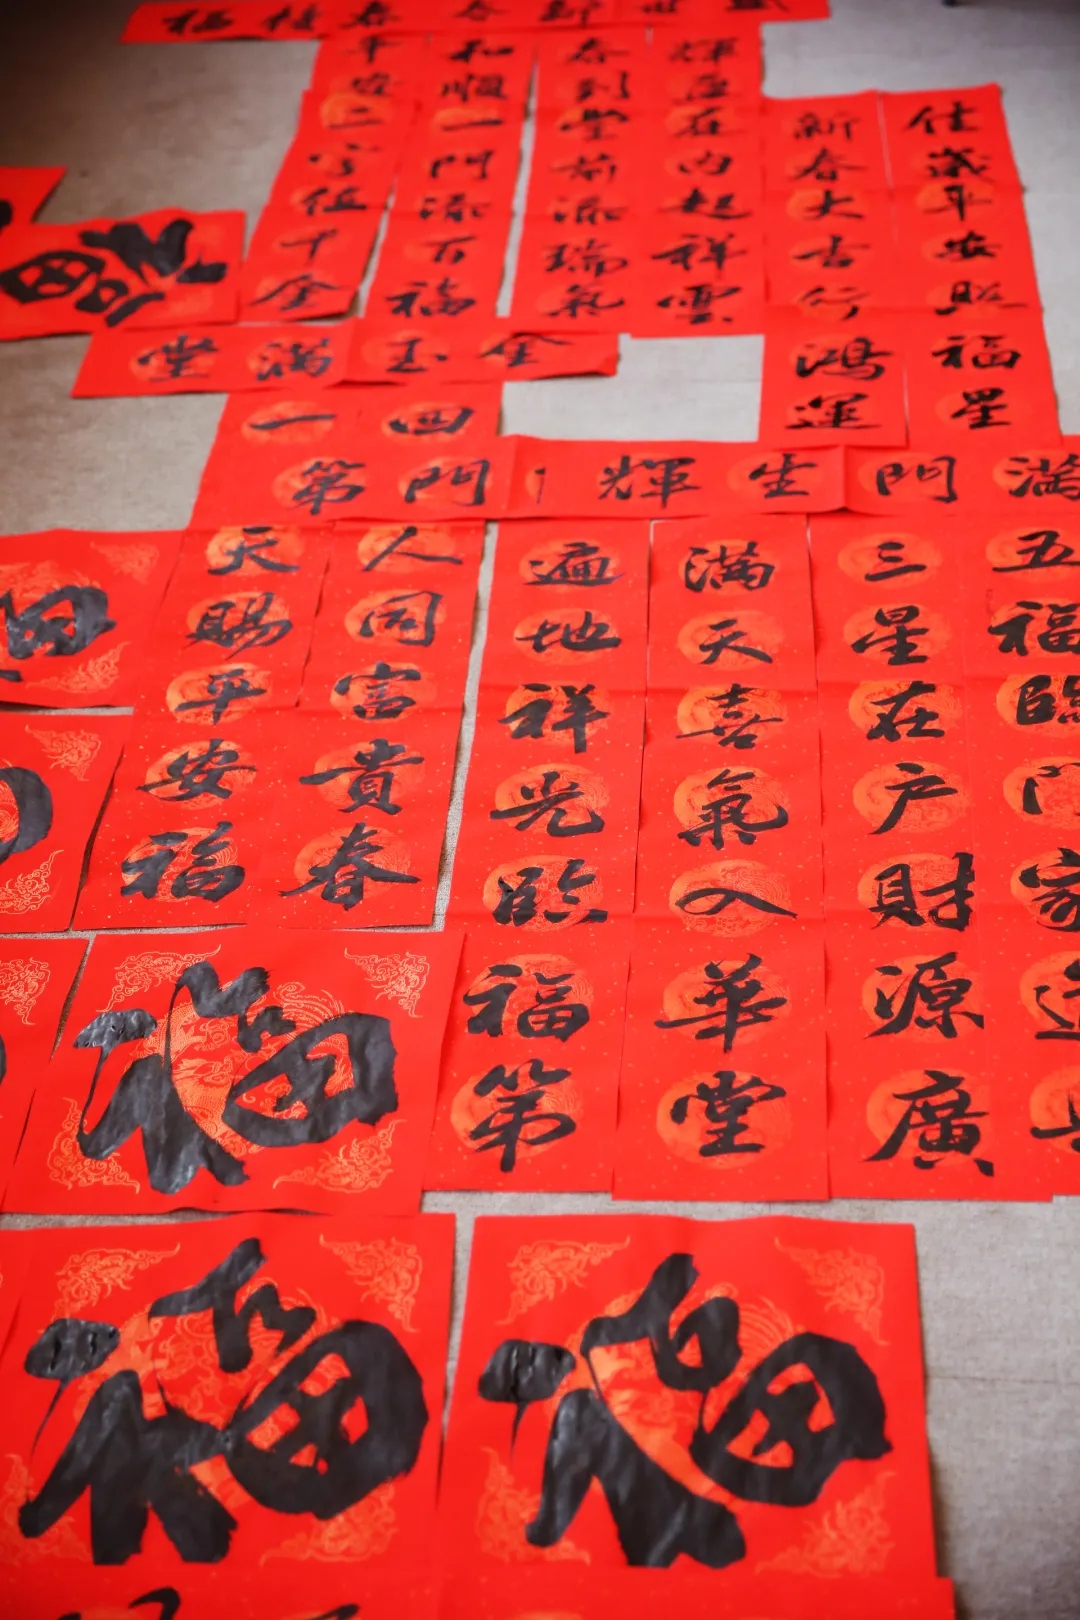 平安二字值千金
和順一門添百福
春到堂前添瑞氣
輝在內起祥雲
新春大吉行鴻運
佳歲平安照福星
福
金玉滿堂
四門
一第
滿門生輝
人同富貴春
天賜平安福
五福臨門家
三星在户財源廣
滿天喜氣入華堂
遍地祥光臨福第
福
福
福